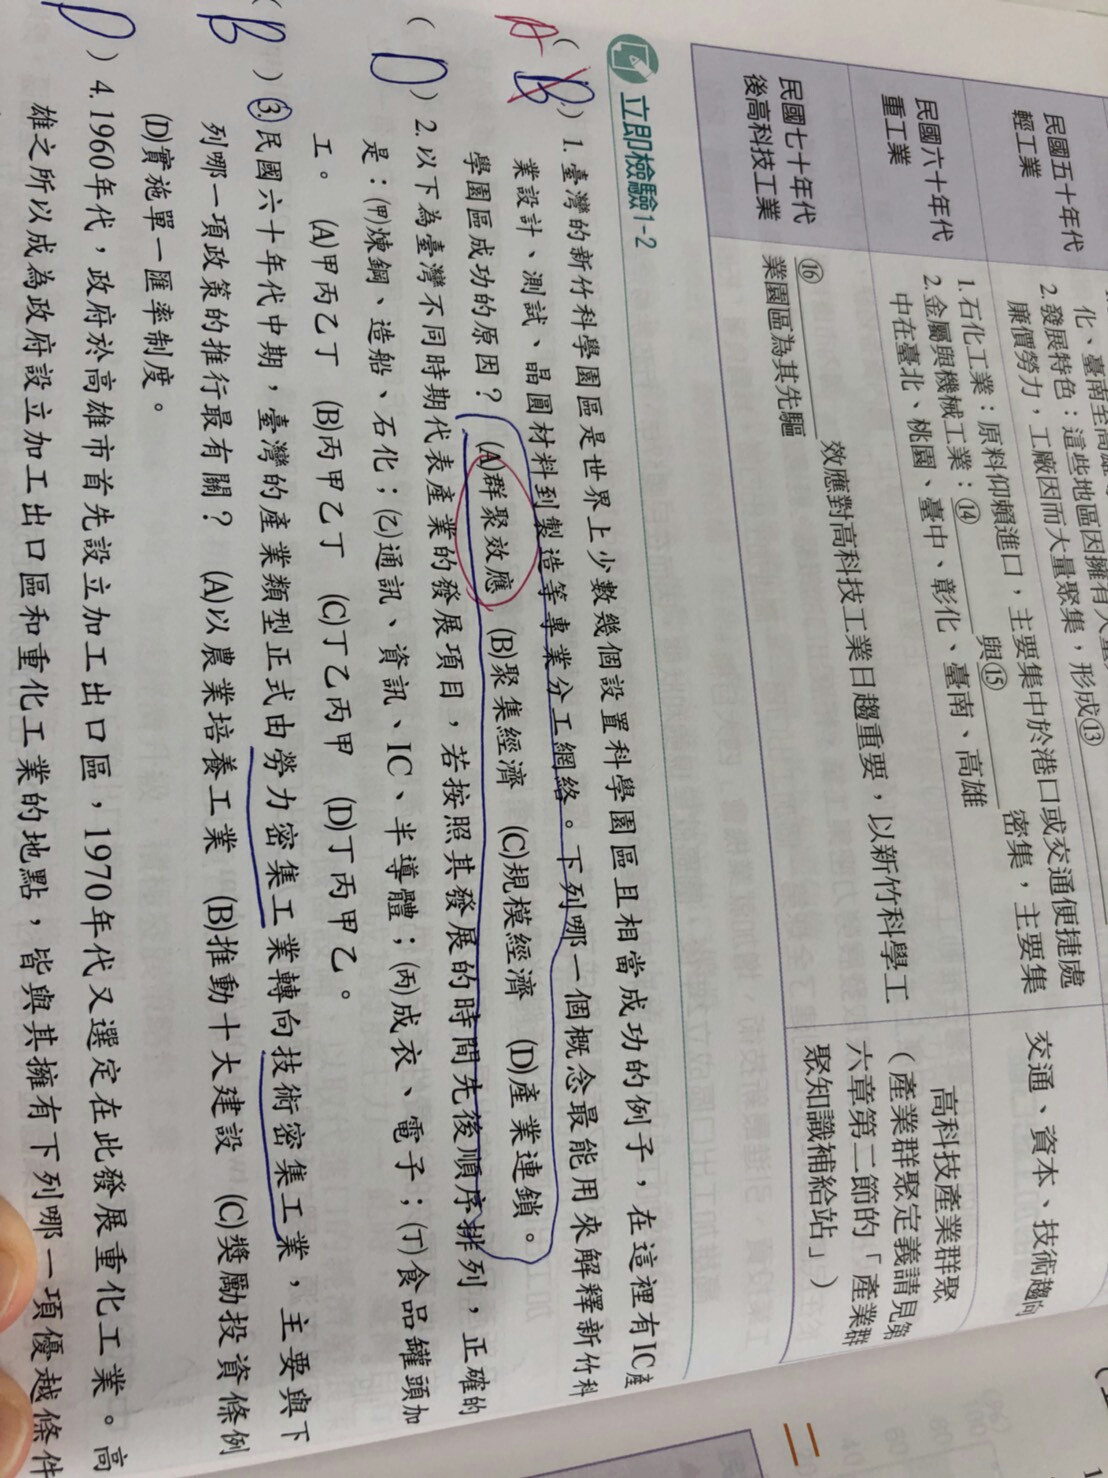 民國五十年代
輕工業
化、臺南至高雄
2.發展特色：這些地區因擁有大量
廉價勞力，工廠因而大量聚集，形成⑬
民國六十年代
重工業
1.石化工業：原料仰賴進口，主要集中於港口或交通便捷處
2.金屬與機械工業：⑭ 與⑮ 密集，主要集
中在臺北、桃園、臺中、彰化、臺南、高雄
交通、資本、技術趨向
民國七十年代
後高科技工業
⑯ 效應對高科技工業日趨重要，以新竹科學工
業園區為其先驅
高科技產業群聚
（產業群聚定義請見第
六章第二節的「產業群
聚知識補給站」）
立即檢驗1-2
A
( B ) 1.臺灣的新竹科學園區是世界上少數幾個設置科學園區且相當成功的例子，在這裡有IC產
業設計、測試、晶圓材料到製造等專業分工網絡。下列哪一個概念最能用來解釋新竹科
學園區成功的原因？ (A)群聚效應 (B)聚集經濟 (C)規模經濟 (D)產業連鎖。
( D ) 2.以下為臺灣不同時期代表產業的發展項目，若按照其發展的時間先後順序排列，正確的
是：(甲)煉鋼、造船、石化；(乙)通訊、資訊、IC、半導體；(丙)成衣、電子；(丁)食品罐頭加
工。 (A)甲丙乙丁 (B)丙甲乙丁 (C)丁乙丙甲 (D)丁丙甲乙。
( B ) 3.民國六十年代中期，臺灣的產業類型正式由勞力密集工業轉向技術密集工業，主要與下
列哪一項政策的推行最有關？ (A)以農業培養工業 (B)推動十大建設 (C)獎勵投資條例
(D)實施單一匯率制度。
D ) 4.1960年代，政府於高雄市首先設立加工出口區，1970年代又選定在此發展重化工業。高
雄之所以成為政府設立加工出口區和重化工業的地點，皆與其擁有下列哪一項優越條件